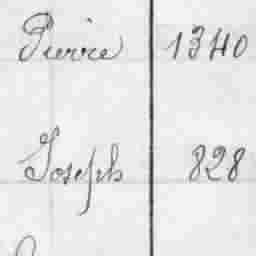 Pierre 1340
Joseph 828